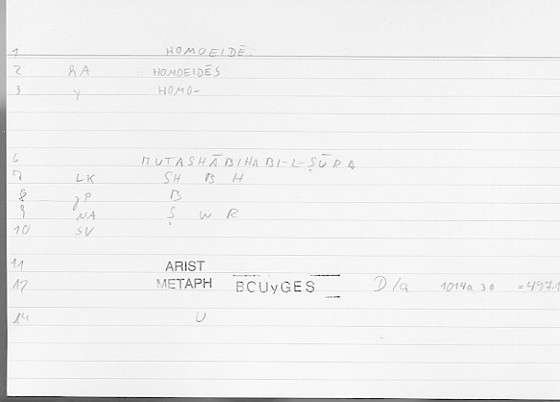 1 HOMOEIDĒ.
2 RA HOMOEIDĒS
3 y HOMO-
6 MUTASHĀBIHA BI-L-ṢŪRA
7 LK SH B H
8 gP B
9 NA Ṣ W R
10 SV
11 ARIST
12 METAPH BCUyGES D/a 1014a 30 =497.1
14 U